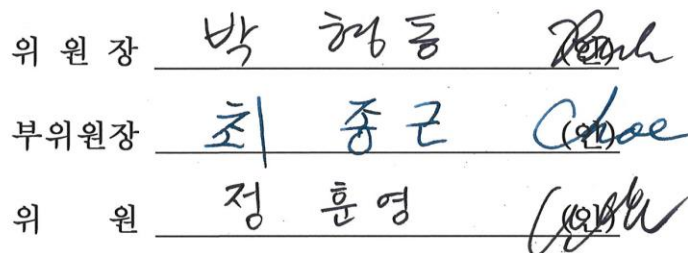 위 원 장 박 형 동 (인)
부위원장 최 종 근 (인) Choe
위 원 정 훈 영 (인)